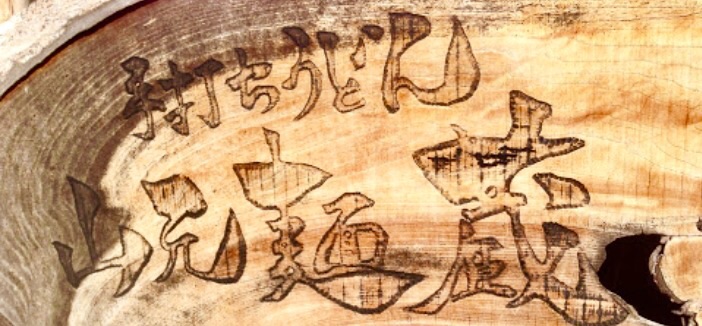 手打ちうどん
山元麺蔵